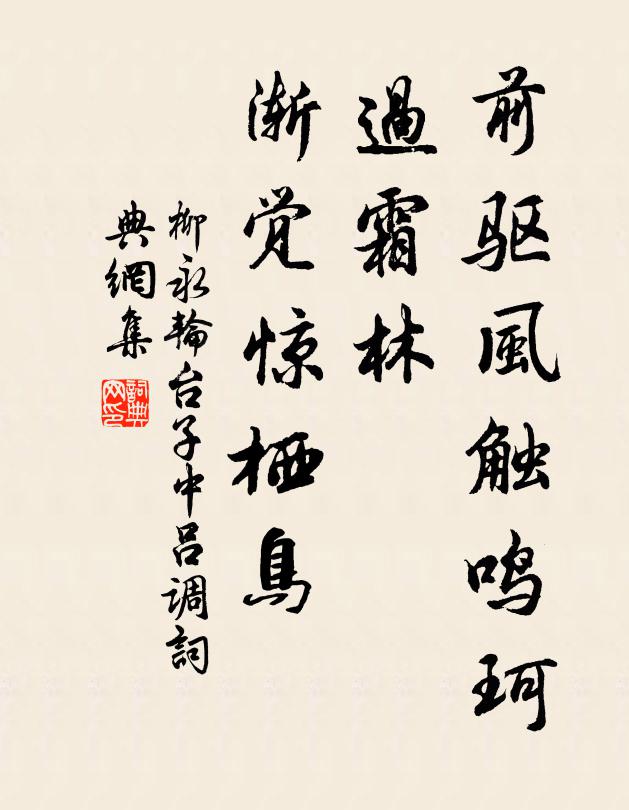 前驱風触鸣珂
過霜林
渐觉惊栖鳥
柳永輪台子中吕調詞
典網集
詞典網印